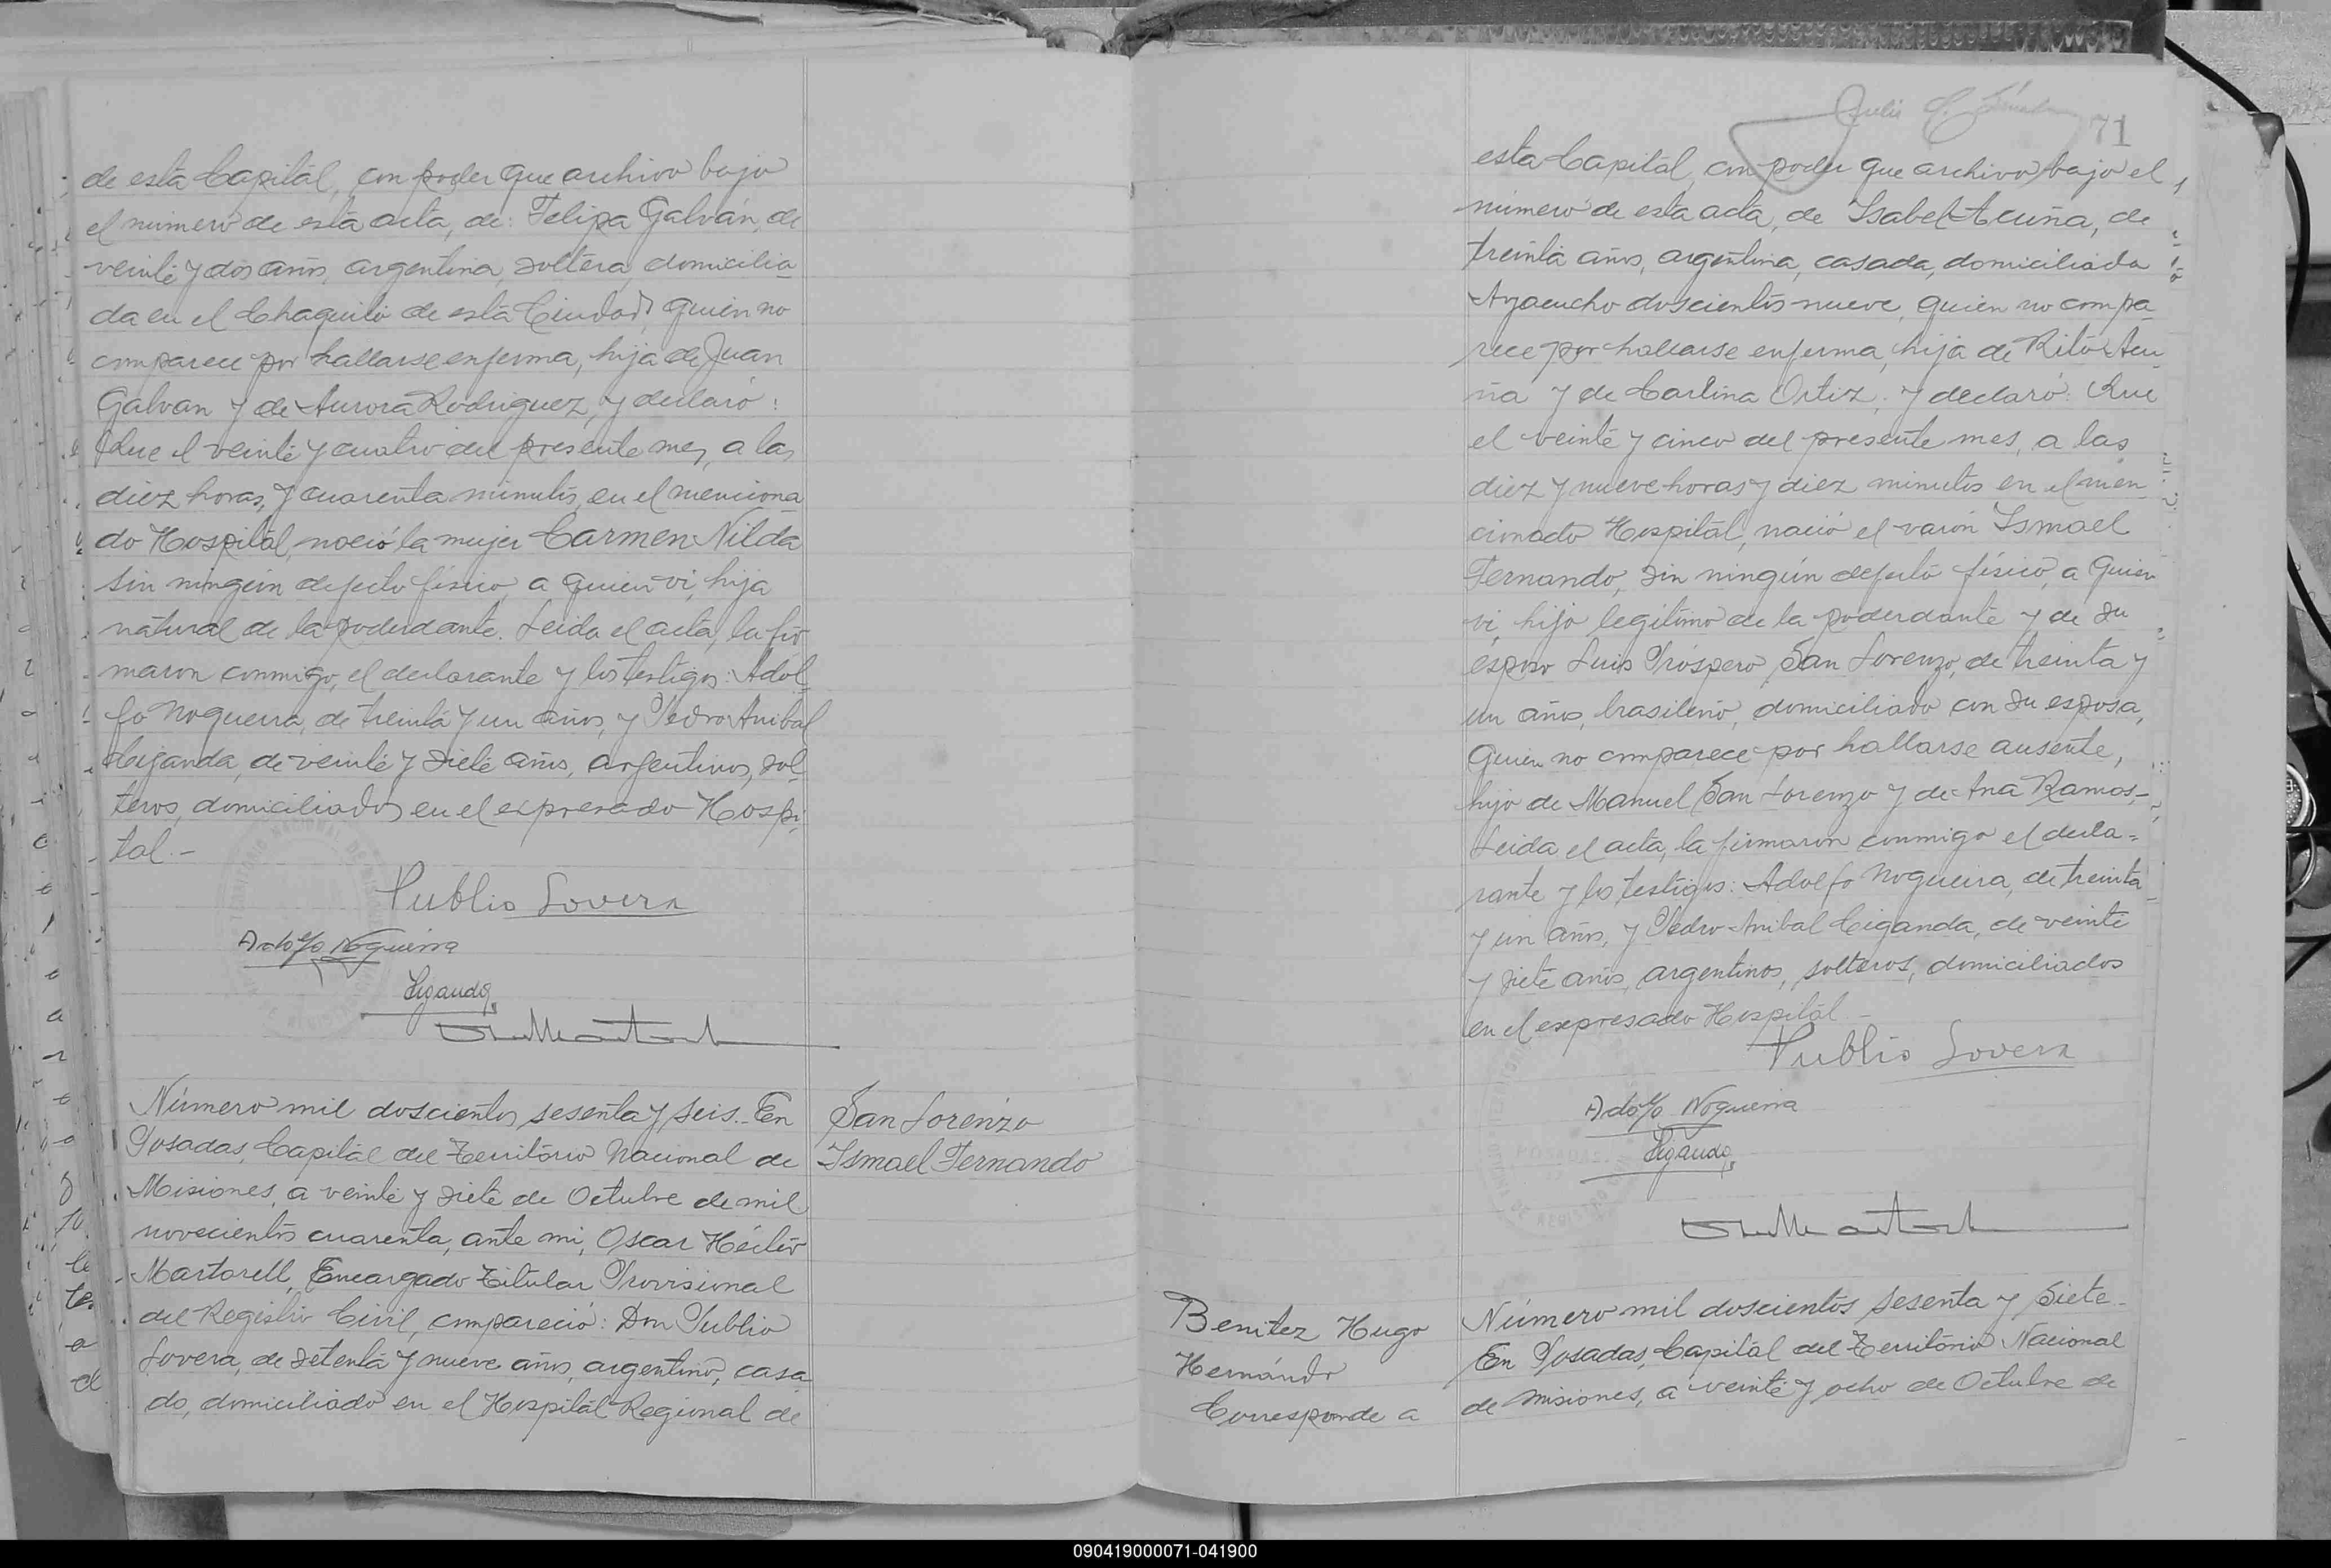 de esta Capital, con poder que archivo bajo
el número de esta acta, de: Felipa Galván, de
veinte y dos años, argentina, soltera, domicilia
da en el Chaquito de esta Ciudad, quien no
comparece por hallarse enferma, hija de Juan
Galvan y de Aurora Rodriguez, y declaró:
Que el veinte y cuatro del presente mes, a las
diez horas, y cuarenta minutos, en el menciona
do Hospital, nació la mujer Carmen Nilda
sin ningún defecto físico, a quien vi, hija
natural de la poderdante. Leida el acta, la fir
maron conmigo, el declarante y los testigos: Adol
fo Nogueira, de treinta y un años, y Pedro Anibal
Ciganda, de veinte y siete años, argentinos, sol
teros, domiciliados en el expresado Hospi
tal.-
Publio Lovera
Adolfo Nogueira
Ciganda
Número mil doscientos sesenta y seis.- En
Posadas, Capital del Territorio Nacional de
Misiones, a veinte y siete de Octubre de mil
novecientos cuarenta, ante mi, Oscar Héctor
Martorell, Encargado Titular Provisional
del Registro Civil, compareció: Don Publio
Lovera, de setenta y nueve años, argentino, casa
do, domiciliado en el Hospital Regional de
San Lorenzo
Ismael Fernando
71
esta Capital, con poder que archivo bajo el
número de esta acta, de Isabel Acuña, de
treinta años, argentina, casada, domiciliada
Ayacucho doscientos nueve, quien no compa
rece por hallarse enferma, hija de Rito Acu
ña y de Carlina Ortiz; y declaró: Que
el veinte y cinco del presente mes, a las
diez y nueve horas y diez minutos en el men
cionado Hospital, nació el varón Ismael
Fernando, sin ningún defecto físico, a quien
vi, hijo legítimo de la poderdante y de su
esposo Luis Próspero San Lorenzo, de treinta y
un años, brasileño, domiciliado con su esposa,
quien no comparece por hallarse ausente,
hijo de Manuel San Lorenzo y de Ana Ramos,-
Leida el acta, la firmaron conmigo el decla=
rante y los testigos: Adolfo Nogueira, de treinta
y un años, y Pedro Anibal Ciganda, de veinte
y siete años, argentinos, solteros, domiciliados
en el expresado Hospital.-
Publio Lovera
Adolfo Nogueira
Ciganda
Benitez Hugo
Hernándo
Corresponde a
Número mil doscientos sesenta y siete.-
En Posadas, Capital del Territorio Nacional
de Misiones, a veinte y ocho de Octubre de
090419000071-041900